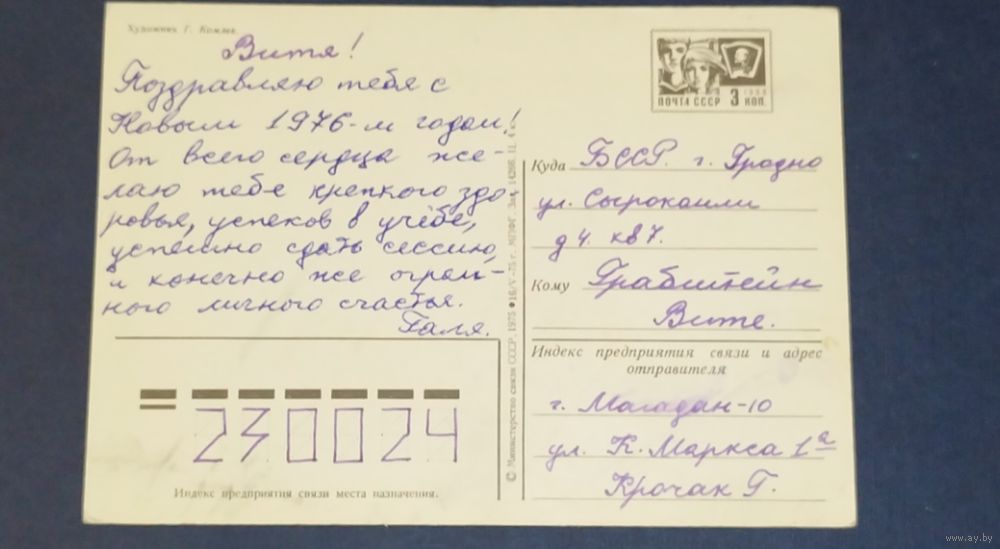 Художник Г. Комлев
Витя!
Поздравляю тебя с
Новым 1976-м годом!
От всего сердца же-
лаю тебе крепкого здо-
ровья, успехов в учёбе,
успешно сдать сессию,
и конечно же огром-
ного личного счастья.
Галя.
ПОЧТА СССР 3 КОП.
Куда БССР. г. Гродно
ул. Сырокомли
д 4. кв 7.
Кому Грабштейн
Вите.
Индекс предприятия связи и адрес
отправителя
г. Магадан-10
ул. К. Маркса 1а
Крочак Г.
230024
Индекс предприятия связи места назначения.
© Министерство связи СССР, 1975 16/V-75 г., МПФГ. Зак. Ц. 4 к.
www.ay.by